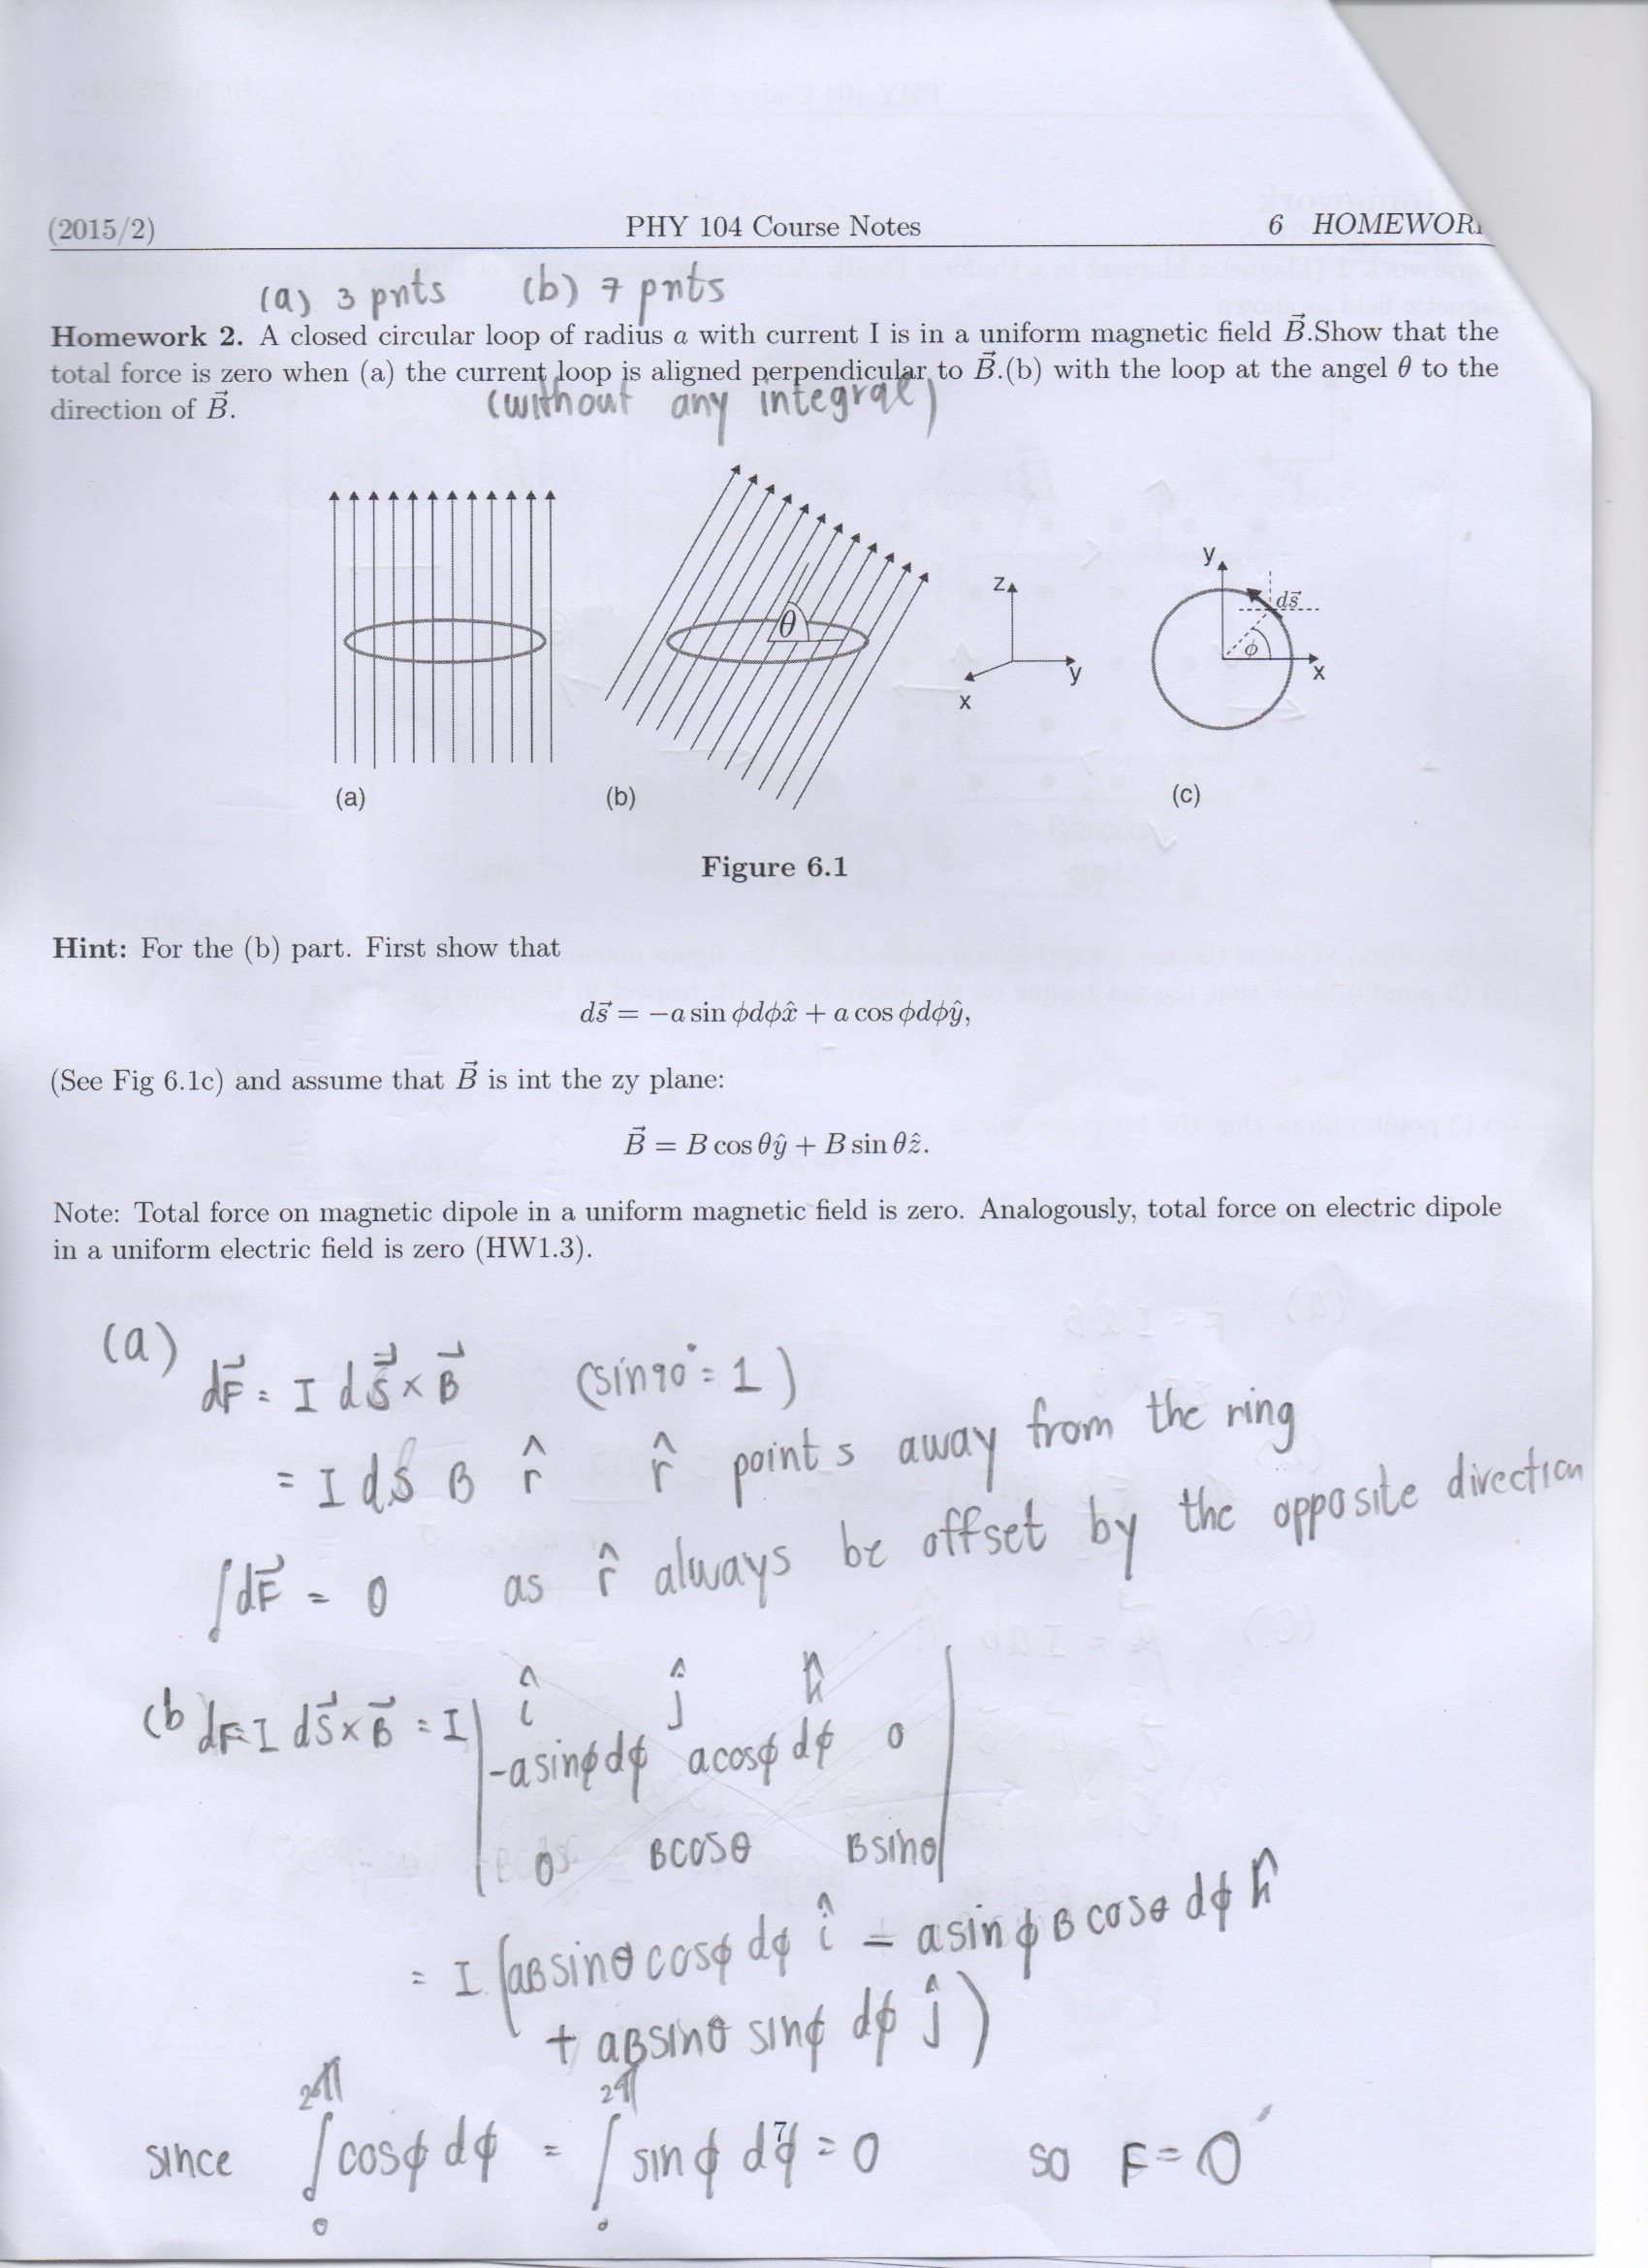 (2015/2) PHY 104 Course Notes 6 HOMEWOR
(a) 3 pnts (b) 7 pnts
Homework 2. A closed circular loop of radius a with current I is in a uniform magnetic field B⃗.Show that the
total force is zero when (a) the current loop is aligned perpendicular to B⃗.(b) with the loop at the angel θ to the
direction of B⃗.
(without any integral)
θ
z
y
x
y
ds⃗
ϕ
x
(a) (b) (c)
Figure 6.1
Hint: For the (b) part. First show that
ds⃗ = −a sin ϕdϕx̂ + a cos ϕdϕŷ,
(See Fig 6.1c) and assume that B⃗ is int the zy plane:
B⃗ = B cos θŷ + B sin θẑ.
Note: Total force on magnetic dipole in a uniform magnetic field is zero. Analogously, total force on electric dipole
in a uniform electric field is zero (HW1.3).
(a)
dF⃗ = I ds⃗ × B⃗ (sin90° = 1)
= I ds B r̂ r̂ points away from the ring
∫dF⃗ = 0 as r̂ always be offset by the opposite direction
(b dF=I ds⃗ × B⃗ = I | î ĵ k̂
-asinϕdϕ acosϕ dϕ 0
0 Bcosθ Bsinθ |
= I (aBsinθcosϕ dϕ î − asinϕ B cosθ dϕ k̂
+ aBsinθ sinϕ dϕ ĵ )
since ∫₀²π cosϕ dϕ = ∫₀²π sinϕ dϕ = 0 so F = 0
7